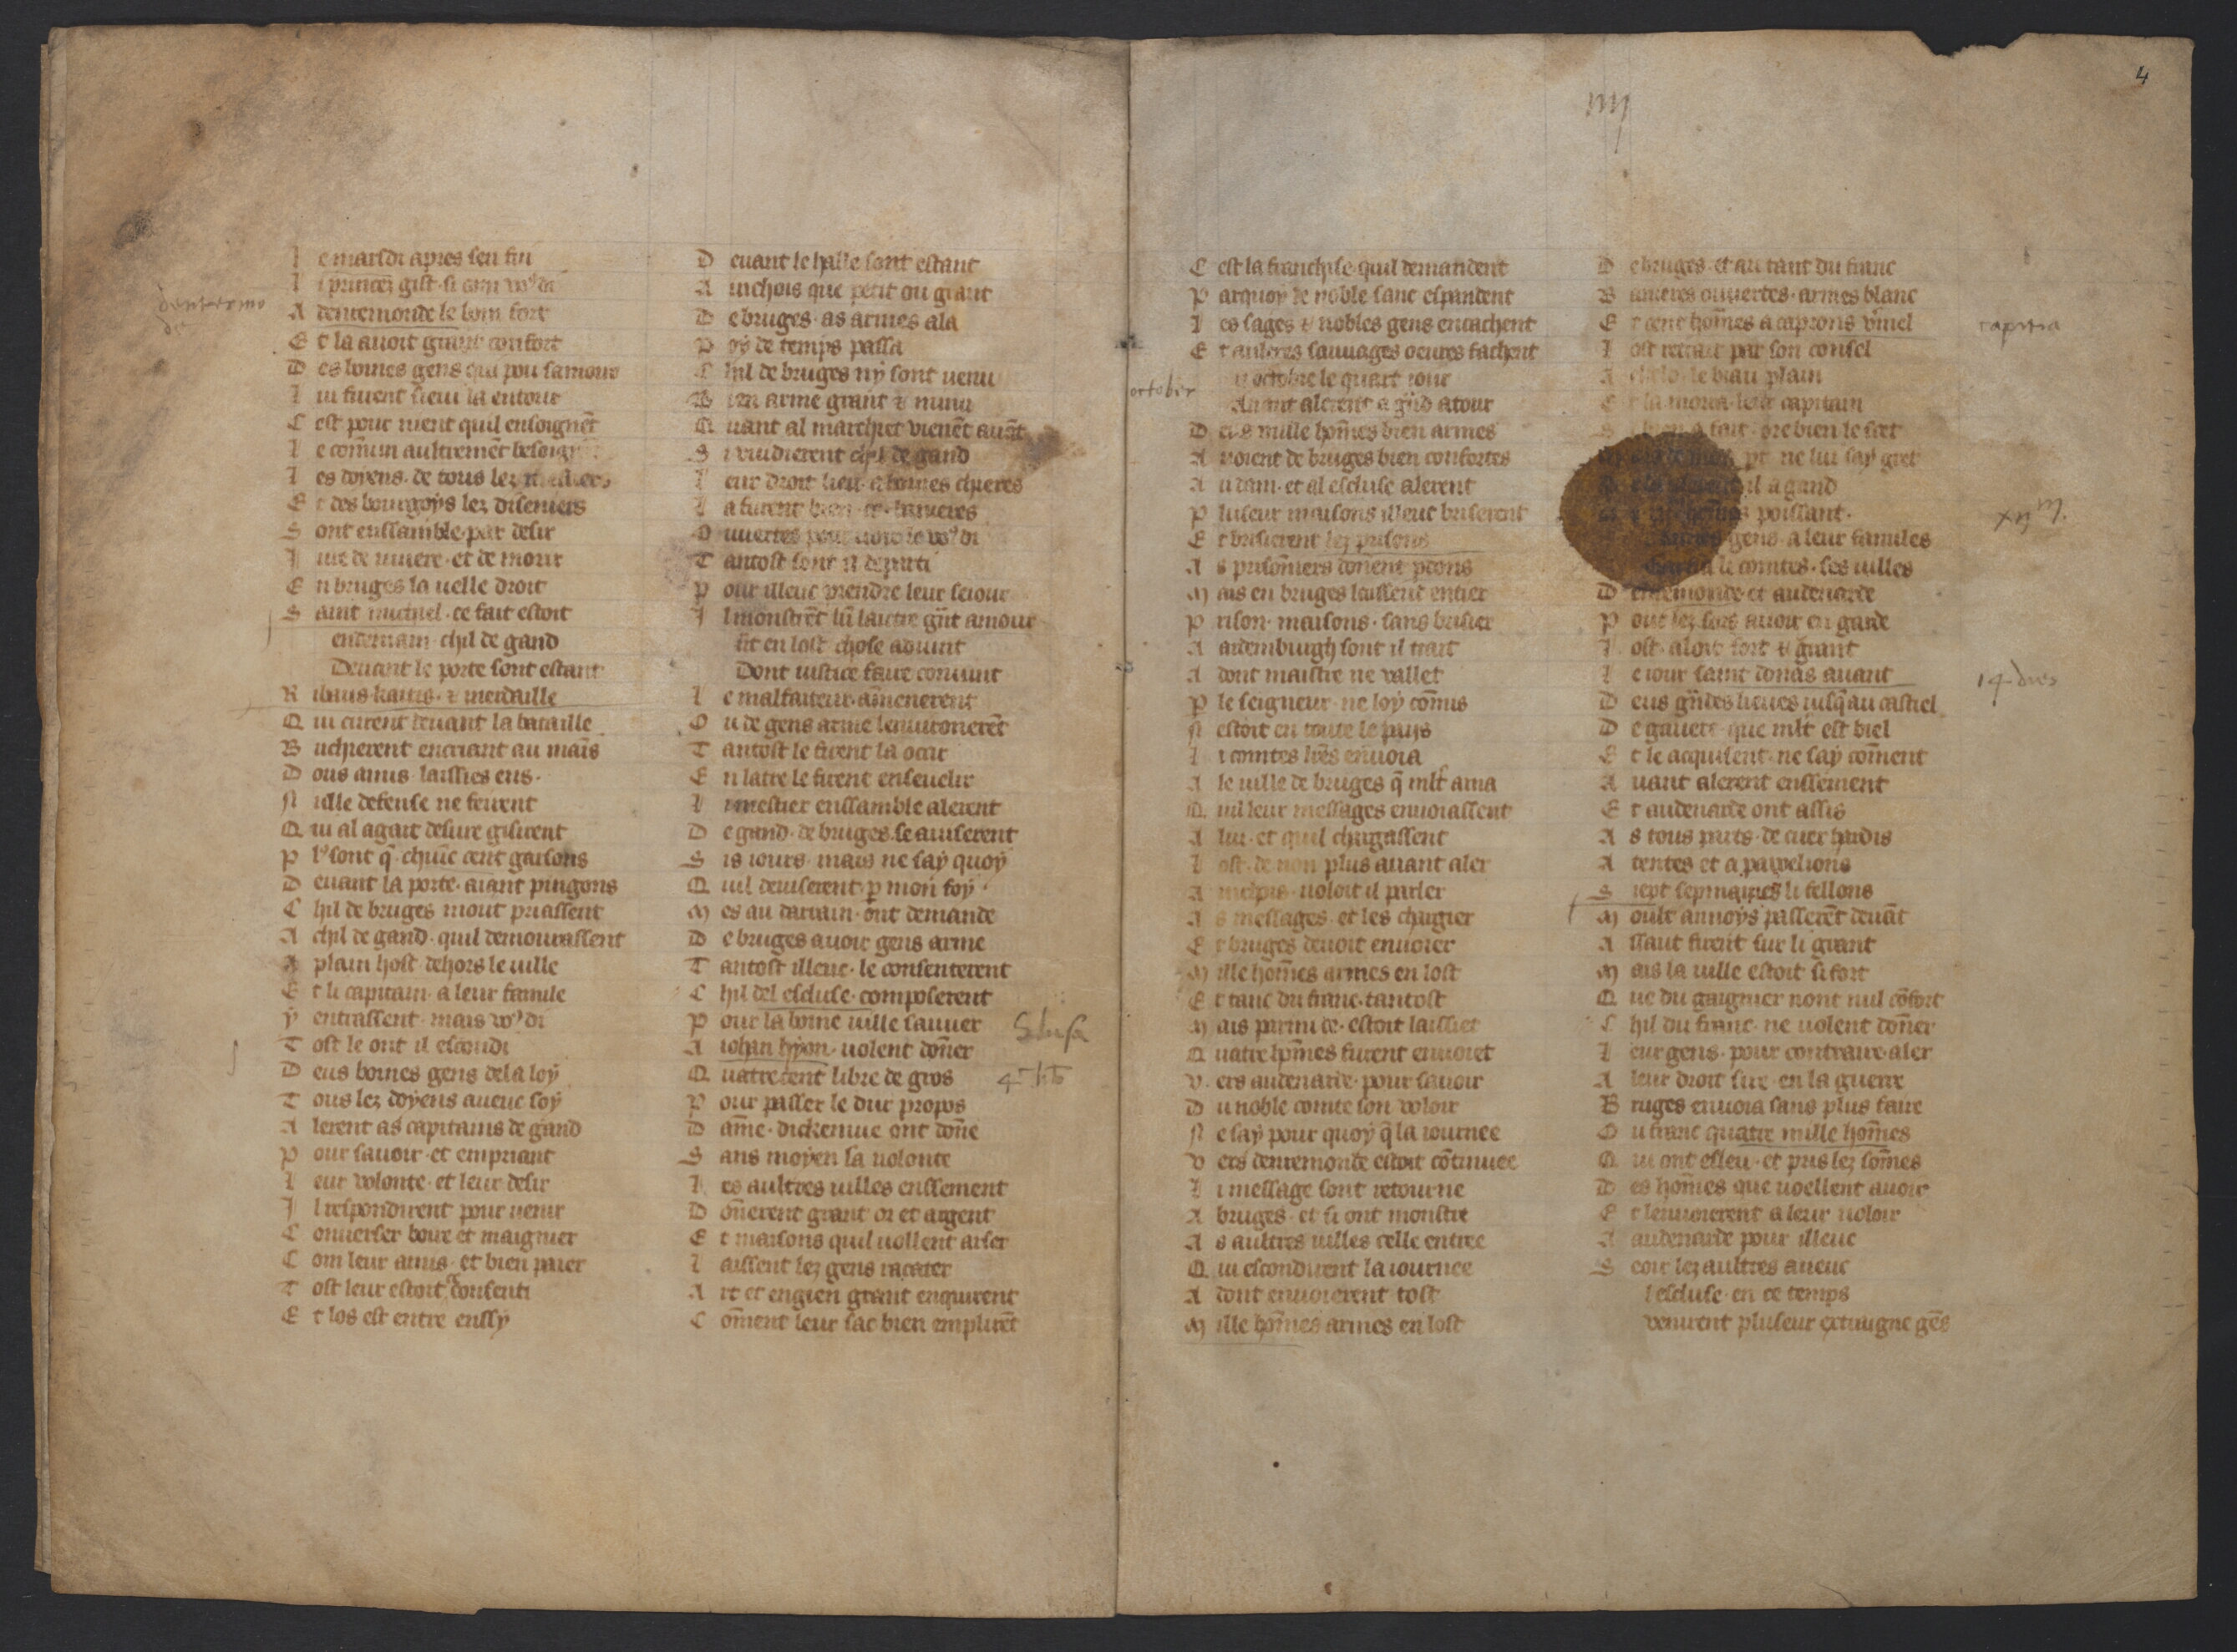 4
iiij
L e marsdi apres sen fui
L i princez gist si com vo9 di
dentermo
de
A dentemonde le boin fort
E t la auoit grant confort
D es boines gens qui pou samour
L ui furent lieui la entour
C est pour nient quil ensoignēt
L e comun aultremēt besoign
L es doyens de tous lez mestiers
E t des bourgoys lez diseniers
S ont enssamble par desir
J ure de viuere et de morir
E n bruges la uelle droit
S aint michiel ce fait estoit
endemain chil de gand
Deuant le porte sont estant
R ibaus kaitis ⁊ merdaille
Q ui eurent deuant la bataille
B uchierent encriant au mains
D ous amis laissies ens
N ulle defense ne feirent
Q ui al agait desure gisirent
P l9 sont q̄ chiūc cent garsons
D euant la porte aiant pingons
C hil de bruges mout priassent
A chil de gand quil demourassent
A plain host dehors le uille
E t li capitain a leur famile
ẏ entrassent mais vo9 di
T ost le ont il escondi
D eus boines gens dela loẏ
T ous lez doẏens auenc soẏ
A lerent as capitains de gand
P our sauoir et empriant
L eur volonte et leur desir
J l respondirent pour uenir
C onuerser boire et maignier
C om leur amis et bien paier
T ost leur estoit consenti
E t los est entre enssẏ
D euant le halle sont estant
A inchois que petit ou grant
D e bruges as armes ala
P oẏ de temps passa
C hil de bruges nẏ sont uenu
B ien arme grant ⁊ menu
Q uant al marchiet vienēt auāt
S i vuidierent chil de gand
L eur droit lieu a boines chieres
L a furent bien ce banieres
O uuertes pour uoir le vo9 di
T antost sont il departi
P our illeuc prendre leur seiour
J l monstrēt lū lautre gñt amour
īt en lost chose aduint
Dont iustice faire conuint
L e malfaiteur amenerent
O u de gens arme lenuironerēt
T antost le firent la ocir
E n latre le firent enseuelir
L i mestier enssamble alerent
D e gand de bruges se auiserent
S is iours mais ne saẏ quoẏ
Q uil deuiserent p mon foẏ
M es au darrain ont demande
D e bruges auoir gens arme
T antost illeuc le consenterent
C hil del escluse composerent
P our la boine uille sauuer
Slusa
A iohan hẏon uolent doñer
Q uatrecent libre de gros
4c lib
P our passer le dur propos
D ame dickemue ont doñe
S ans moẏen sa uolonte
L es aultres uilles enssement
D oñerent grant or et argent
E t maisons quil uollent arser
L aissent lez gens racater
A rt et engien grant enquirent
C oment leur sac bien emplirēt
C est la franchise quil demandent
P arquoẏ de noble sanc espandent
L es sages ⁊ nobles gens encachent
E t aultres sauuages oeures fachent
october
n octobre le quart iour
Auant alerent a gñd atour
D eus mille hom̄es bien armes
A uoient de bruges bien confortes
A u dam et al escluse alerent
P luseur maisons illeuc briserent
E t briserent lez prisons
A s prisoñiers donent pdons
M ais en bruges laissent entier
P rison maisons sans brisier
A ardemburgh sont il trait
A dont maistre ne vallet
P le seigneur ne loẏ com̄is
N estoit en toute le paẏs
L i contes lr̄es enuoia
A le uille de bruges q̄ mlt ama
Q uil leur messages enuoiassent
A lui et quil chargassent
L ost de non plus auant aler
A inchois uoloit il parler
A s messages et les chargier
E t bruges deuoit enuoier
M ille hom̄es armes en lost
E t tanc du franc tantost
M ais parmi ce estoit laissiet
Q uatre hom̄es furent enuoiet
V ers audenarde pour sauoir
D u noble comte son voloir
N e saẏ pour quoẏ q̄ la iournee
V ers dentemonde estoit cōtinuee
L i message sont retourne
A bruges et si ont monstre
A s aultres uilles celle entree
Q ui escondirent la iournee
A dont enuoierent tost
M ille hom̄es armes en lost
D e bruges et au tant du franc
B anieres ouuertes armes blanc
E t cent hom̄es a caprons v̄meil
capitia
L ost retrait par son consel
A le biau plain
E t la moru leur capitain
fait bien le scet
ne lui saẏ gret
il a gand
poissant
xij m.
gens a leur familes
li comtes ses uilles
D entemonde et audenarde
P our lez sors auoir en garde
L ost aloit fort ⁊ grant
L e iour saint donas auant
14 dies
D eus gñdes lieues iusq̄ au castiel
D e gauere que mlt est biel
E t le acquisent ne saẏ coment
A uant alerent enssement
E t audenarde ont assis
A s tous parts de cuer hardis
A tentes et a pauelions
S iept sepmaines li fellons
M oult annoẏs passerēt deuāt
A ssaut firent sur li grant
M ais la uille estoit si fort
Q ue du gaignier nont nul cōfort
C hil du franc ne uolent doñer
L eur gens pour contraire aler
A leur droit sire en la guerre
B ruges enuoia sans plus faire
O u franc quatre mille hom̄es
Q ui ont esleu et pris lez som̄es
D es hom̄es que uoellent auoir
E t lenuoierent a leur uoloir
A audenarde pour illeuc
S eoir lez aultres aueuc
lescluse en ce temps
venirent pluseur extraigne gēs